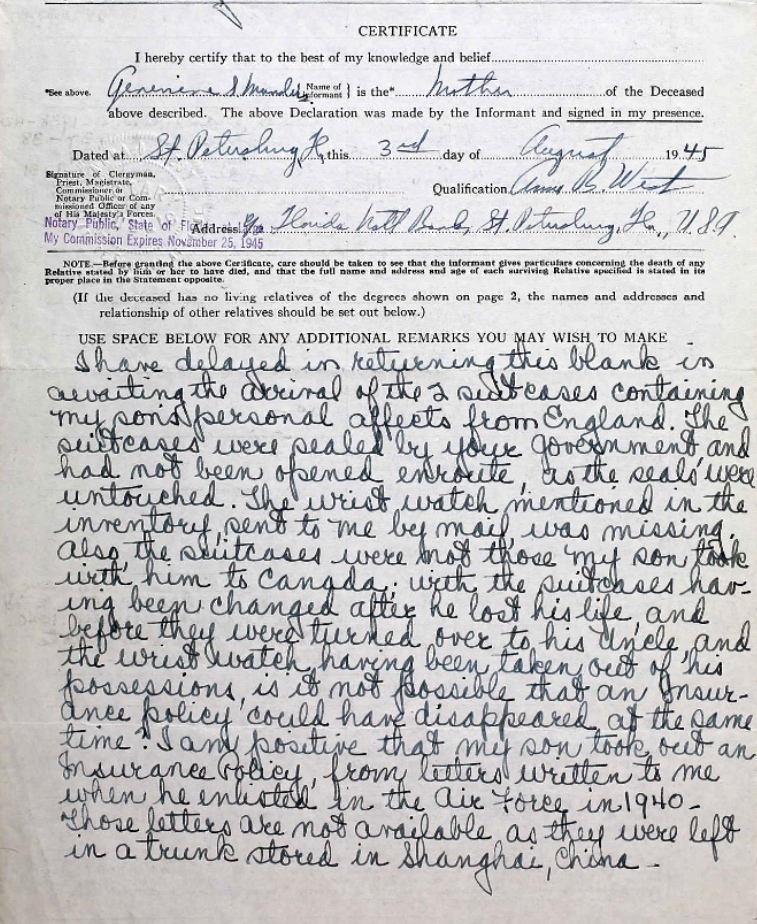 CERTIFICATE
I hereby certify that to the best of my knowledge and belief
*See above. Genevieve S Name of Informant } is the* Mother of the Deceased
above described. The above Declaration was made by the Informant and signed in my presence.
Dated at St. Petersburg, Fl, this 3rd day of August 1945
Signature of Clergyman,
Priest, Magistrate,
Commissioner or
Notary Public or Com-
missioned Officer of any
of His Majesty's Forces.
Qualification B. West
Notary Public, State of
My Commission Expires November 25, 1945
Address Florida Natl Bank, St. Petersburg, Fla., U.S.A.
NOTE.—Before granting the above Certificate, care should be taken to see that the informant gives particulars concerning the death of any
Relative stated by him or her to have died, and that the full name and address and age of each surviving Relative specified is stated in its
proper place in the Statement opposite.
(If the deceased has no living relatives of the degrees shown on page 2, the names and addresses and
relationship of other relatives should be set out below.)
USE SPACE BELOW FOR ANY ADDITIONAL REMARKS YOU MAY WISH TO MAKE
I have delayed in returning this blank in
awaiting the arrival of the 2 suitcases containing
my son's personal affects from England. The
suitcases were sealed by your government and
had not been opened enroute, as the seals were
untouched. The wrist watch mentioned in the
inventory, sent to me by mail, was missing.
Also, the suitcases were not those my son took
with him to Canada; with the suitcases hav-
ing been changed after he lost his life, and
before they were turned over to his Uncle, and
the wrist watch, having been taken out of his
possessions, is it not possible that an Insur-
ance policy could have disappeared at the same
time? I am positive that my son took out an
Insurance Policy, from letters written to me
when he enlisted in the Air Force in 1940-
Those letters are not available, as they were left
in a trunk stored in Shanghai, China -